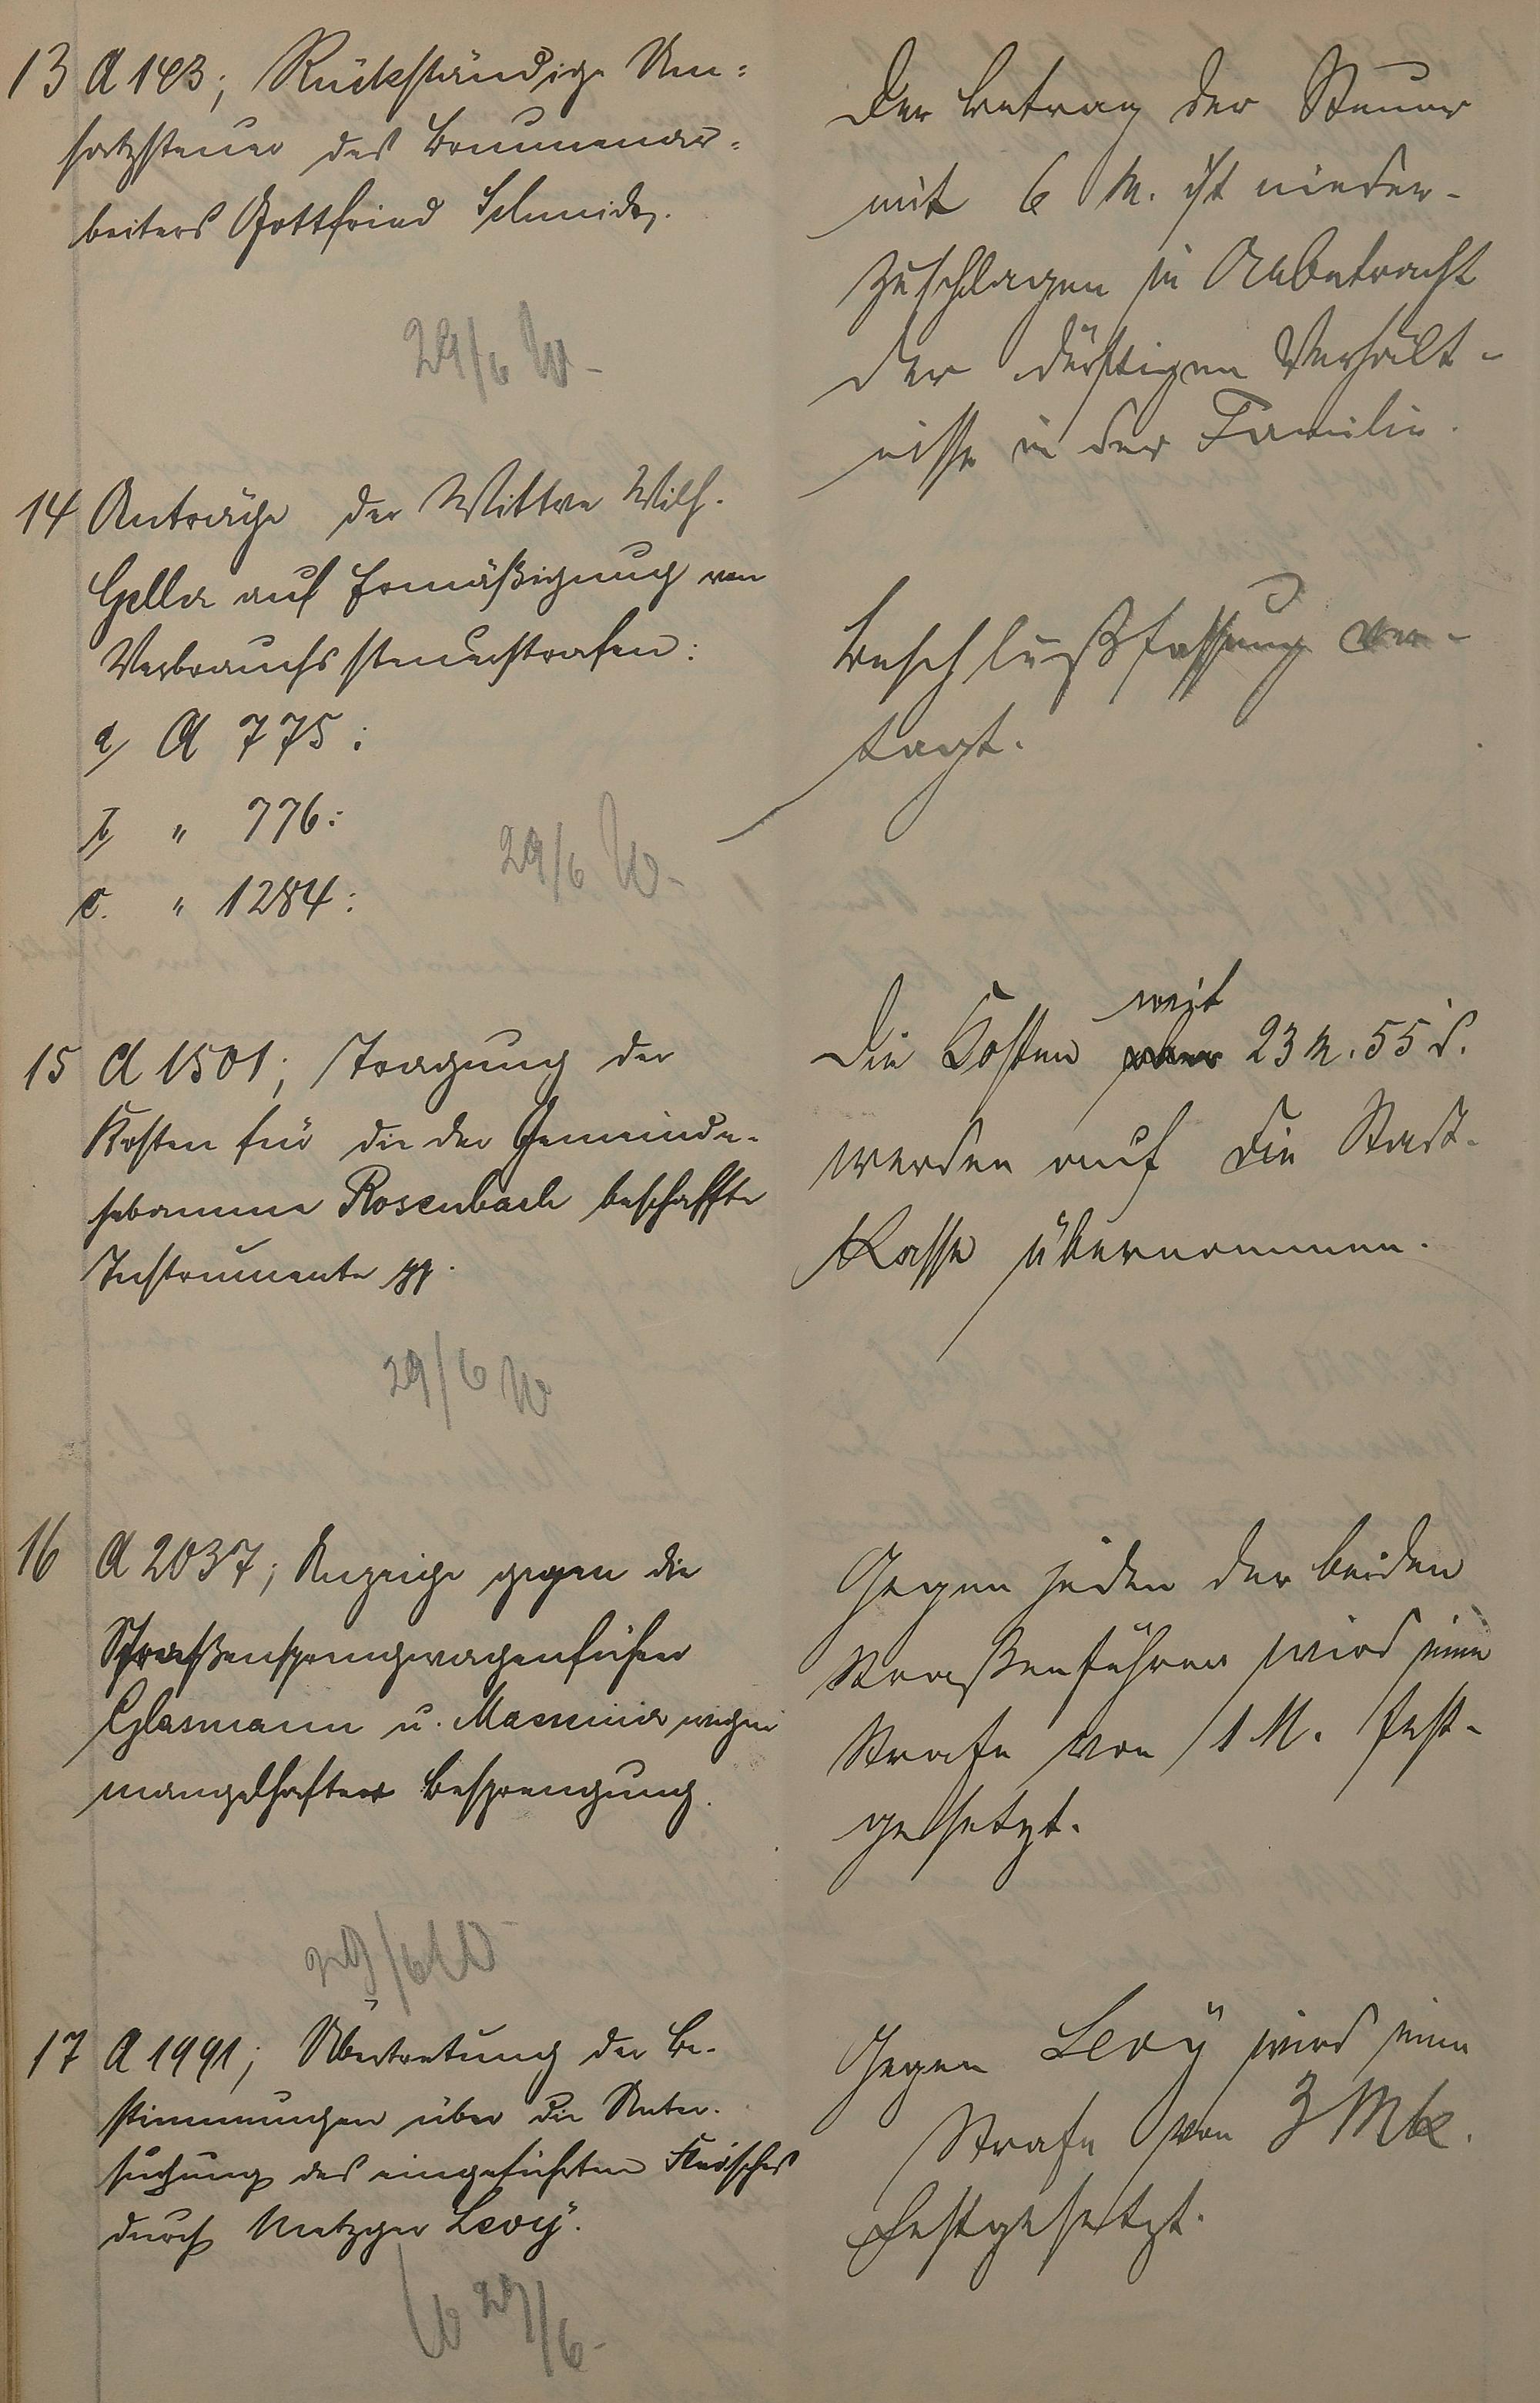 13 A 143; Rückständige Um=
satzsteuer des Brunnenar=
beiters Gottfried Schmidt.
29/6 W-
Der Betrag der Steuer
mit 6 M. ist nieder-
zuschlagen in Anbetracht
der dürftigen Verhält-
nisse in der Familie.
14 Anträge der Wittwe Wilh.
Gella auf Ermäßigung von
Verbrauchssteuerstrafen:
a, A 775:
b, " 776:
c. " 1284:
29/6 W-
Beschlußfassung ver-
tagt.
15 A 1501; Tragung der
Kosten für die der Gemeinde-
hebamme Rosenbach beschaffte
Instrumente pp.
29/6 W
mit
Die Kosten 23 M. 55 d.
werden auf die Stadt-
Kasse übernommen.
16 A 2037; Anzeige gegen die
Straßensprengwagenführer
Glasmann u. wegen
mangelhafter Besprengung.
29/6 W-
Gegen jeden der beiden
Straßenführer wird eine
Strafe von 1 M. fest-
gesetzt.
17 A 1991; Übertretung der Be-
stimmungen über die Unter-
suchung des eingeführten Fleisches
durch Metzger Levÿ.
W 29/6-
Gegen Levÿ wird eine
Strafe von 3 Mk.
festgesetzt.